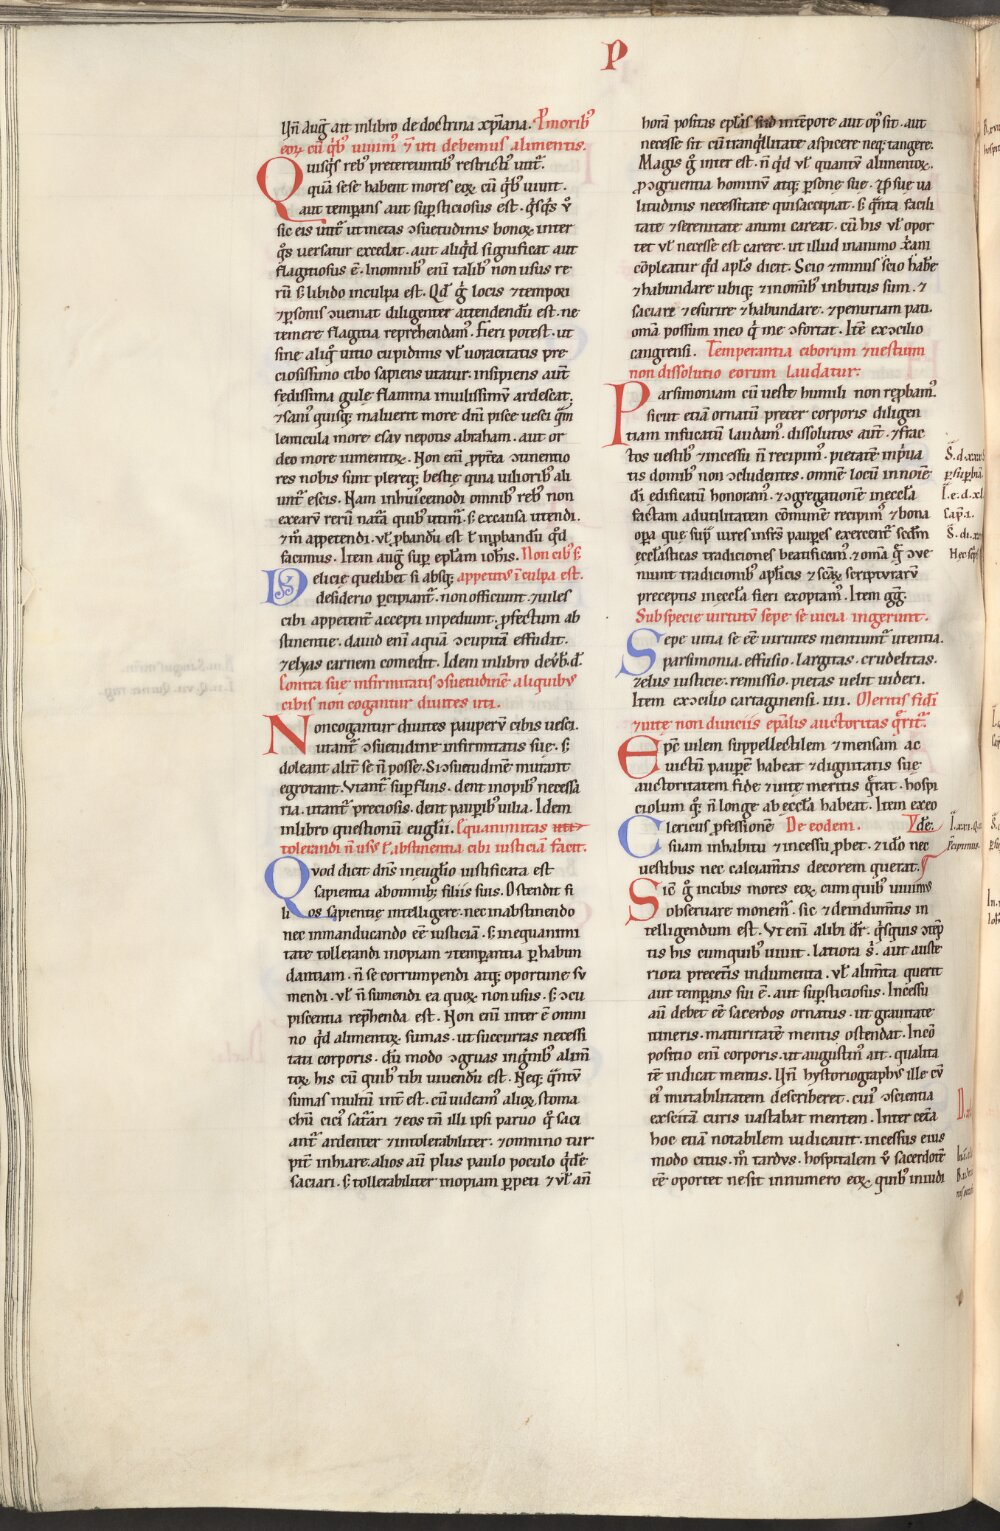 P
Vn̄ Aug̅ ait in libro de doctrina xp̄iana. P̱ moribꝰ
eoꝝ cū q̇bꝰ uiuimꝰ ⁊ uti debemus alimentis.
Quisq̇s rebꝰ pretereuntibꝰ restrictiꝰ utit᷑.
quā sese habent mores eoꝝ cū q̇bꝰ uiuit.
aut temꝑans aut suꝑsticiosus est. q̇sq̇s ỽ
sic eis utit᷑ ut metas ↄsuetudinis bonoꝝ inter
q̇s uersatur excedat. aut aliq̇d significat aut
flagitiosus ē. In omnibꝰ eni̅ talibꝰ non usus re
rū s; libido in culpa est. Qd̓ g̊ locis ⁊ tempori
⁊ ꝑsonis ↄueniat diligenter attendendū est. ne
temere flagitia reprehendamꝰ. Fieri potest. ut
sine aliq̊ uitio cupidinis ul̓ uoracitatis pre
ciosissimo cibo sapiens utatur. insipiens aut̄
fedissima gule flamma in uilissimū ardescat;
⁊ sani quisq; maluerit more dn̄i pisce uesci q̄m
lenticula more esau nepotis abraham. aut or
deo more iumentoꝝ. Non eni̅ ꝓpt̓ea ↄtinentio
res nobis sunt plereq; bestie quia uilioribꝰ ali
unt᷑ escis. Nam in huiꝰcemodi omnibꝰ rebꝰ non
ex earū rerū nat̓a quibꝰ utimᷣ. s; ex causa utendi.
⁊ m̊ appetendi. ul̓ ꝓbandū est ł inꝓbandū q̊d
facimus. Item aug̅ suꝑ epl̄am ioh̄is. Non cibꝰ s;
Delicie quelibet si absq; appetitꝰ ī culpa est.
desiderio ꝑcipiant᷑. non officiunt. ⁊ uiles
cibi appetent̓ accepti inpediunt. ꝓfectum ab
stinentie. dauid eni̅ aquā ↄcupitā effudit.
⁊ elyas carnem comedit. Idem in libro de ūb̄.d̄.
Contra sue infirmitatis ↄsuetudinē aliquibꝰ
cibis non cogantur diuites uti.
Non cogantur diuites pauperū cibis uesci.
utant᷑ ↄsuetudine infirmitatis sue. s;
doleant alit̓ se n̄ posse. Si ↄsuetudinē mutant
egrotant. Utant᷑ suꝑfluis. dent inopibꝰ necessa
ria. utant᷑ preciosis. dent pauꝑibꝰ uilia. Idem
in libro questionū eug̅lii. Equanimitas
tolerandi n̄ usꝰ ł abstinentia cibi iusticiā facit.
Quod dicit dn̄s in eug̅lio iustificata est
sapientia ab omnibꝰ filiis suis. Ostendit fi
lios sapientie intelligere. nec in abstinendo
nec in manducando eē iusticiā. s; in equanimi
tate tollerandi inopiam ⁊ temꝑantia ꝑ habun
dantiam. n̄ se corrumpendi atq; oportune su
mendi. ul̓ n̄ sumendi ea quoꝝ non usus. s; ↄcu
piscentia rep̄henda est. Non eni̅ inter ē omni
no q̊d alimentoꝝ sumas. ut succurtas necessi
tati corporis. dū modo ↄgruas in gn̄ibꝰ alim̄
toꝝ his cū quibꝰ tibi uiuendū est. Neq; q̄ntū
sumas multū int̓ est. cū uideamꝰ alioꝝ stoma
chū ciciꝰ sat᷑ari ⁊ eos tn̄ illi ipsi paruo q̊ saci
ant᷑ ardenter ⁊ intolerabiliter. ⁊ omnino tur
pit̓ inhiare. alios aū plus paulo poculo q̇dē
saciari. s; tollerabiliter inopiam ꝑpeti ⁊ ul̓ an̄
horā positas epl̄as in tēpore aut op̄ sit. aut
necesse sit cū tranq̇llitate aspicere neq; tangere.
Magis g̊ inter est. n̄ q̊d ul̓ quantū alimentoꝝ.
ꝓ ↄgruentia hominū atq; ꝑsone sue. ⁊ ꝓ sue ua
litudinis necessitate quis accipiat. s; q̄nta facili
tate ⁊ serenitate animi careat. cū his ul̓ opor
tet ul̓ necesse est carere. ut illud in animo x̄ani
cōpleatur q̊d apl̄s dicit. Scio ⁊ minus scio hab̄e
⁊ habundare ubiq; ⁊ in om̄ibꝰ inbutus sum. ⁊
saciare ⁊ esurire ⁊ habundare. ⁊ penuriam pati.
omīa possum in eo q̇ me ↄfortat. Itē ex ↄcilio
cangrensi. Temperantia ciborum ⁊ uestium
non dissolutio eorum laudatur:
Parsimoniam cū ueste humili non rep̄hamꝰ.
sicut etiā ornatū preter corporis diligen
tiam infucatū laudamꝰ. dissolutos aut̄. ⁊ frac
tos uestibꝰ ⁊ incessu n̄ recipimꝰ. pietatē in p̄ua
tis domibꝰ non ↄcludentes. omnē locū in noīe
dī edificatū honoramꝰ. ⁊ ↄgregationē in eccl̄a
factam ad utilitatem cōmunē recipimꝰ ⁊ bona
oꝑa que sup̄ uires infr̄s pauꝑes exercent᷑ scd̄m
eccl̄asticas tradiciones beatificamꝰ. ⁊ omīa q̄ ↄue
niunt tradicionibꝰ apl̄icis ⁊ scāꝝ scripturarū
preceptis in eccl̄a fieri exoptamꝰ. Item gg̅.
Sub specie uirtutū sepe se uicia ingerunt.
Sepe uitia se eē uirtutes mentiunt᷑ ut tentia.
parsimonia. effusio. largitas. crudelitas.
zelus iusticie. remissio. pietas uelit uideri.
Item ex ↄcilio cartaginensi. iiii. Meritis fidi
⁊ uite non diuiciis epālis auctoritas q̄rit᷑.
Epc̄ uilem suppellectilem ⁊ mensam ac
uictū pauperē habeat ⁊ dignitatis sue
auctoritatem fide ⁊ uite meritis q̄rat. hospi
ciolum q; n̄ longe ab eccl̄a habeat. Item ex eo
Clericus ꝓfessionē De eodem. Ydē:
suam in habitu ⁊ incessu ꝓbet. ⁊ ido̓ nec
uestibus nec calciam̄tis decorem querat.
Sic̄ g̊ in cibis mores eoꝝ cum quibꝰ uiuimꝰ
obseruare monemᷣ. sic ⁊ de indum̄tis in
telligendum est. Ut eni̅ alibi dr̄. q̇squis ↄtēp
tis his cum quibꝰ uiuit. latiora s;. aut auste
riora preceris indumenta. ul̓ alim̄ta querit
aut temꝑans sui ē. aut suꝑsticiosus. Incessu
aū debet eē sacerdos ornatus. ut grauitate
itineris. maturitatē mentis ostendat. Incō
positio eni̅ corporis. ut augustinꝰ ait. qualita
tē indicat mentis. Vn̄ hystoriographus ille cū
eiꝰ mutabilitatem describeret. cuiꝰ ↄscientia
exscitā curis uastabat mentem. Inter cet̓a
hoc etiā notabilem iudicauit. incessus eius
modo citus. m̊ tardus. hospitalem ỽ sacerdotē
eē oportet ne sit in numero eoꝝ. quibꝰ in iudi